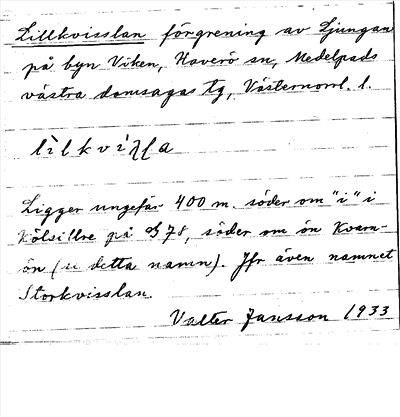 Lillkvisslan förgrening av Ljungan
på byn Viken, Haverö sn, Medelpads
västra domsagas tg, Västernorrl. l.
Ligger ungefär 400 m. söder om "i" i
Kölsillre på 78, söder om ön Kvarn-
ön (se detta namn). Jfr även namnet
Storkvisslan.
Valter Jansson 1933